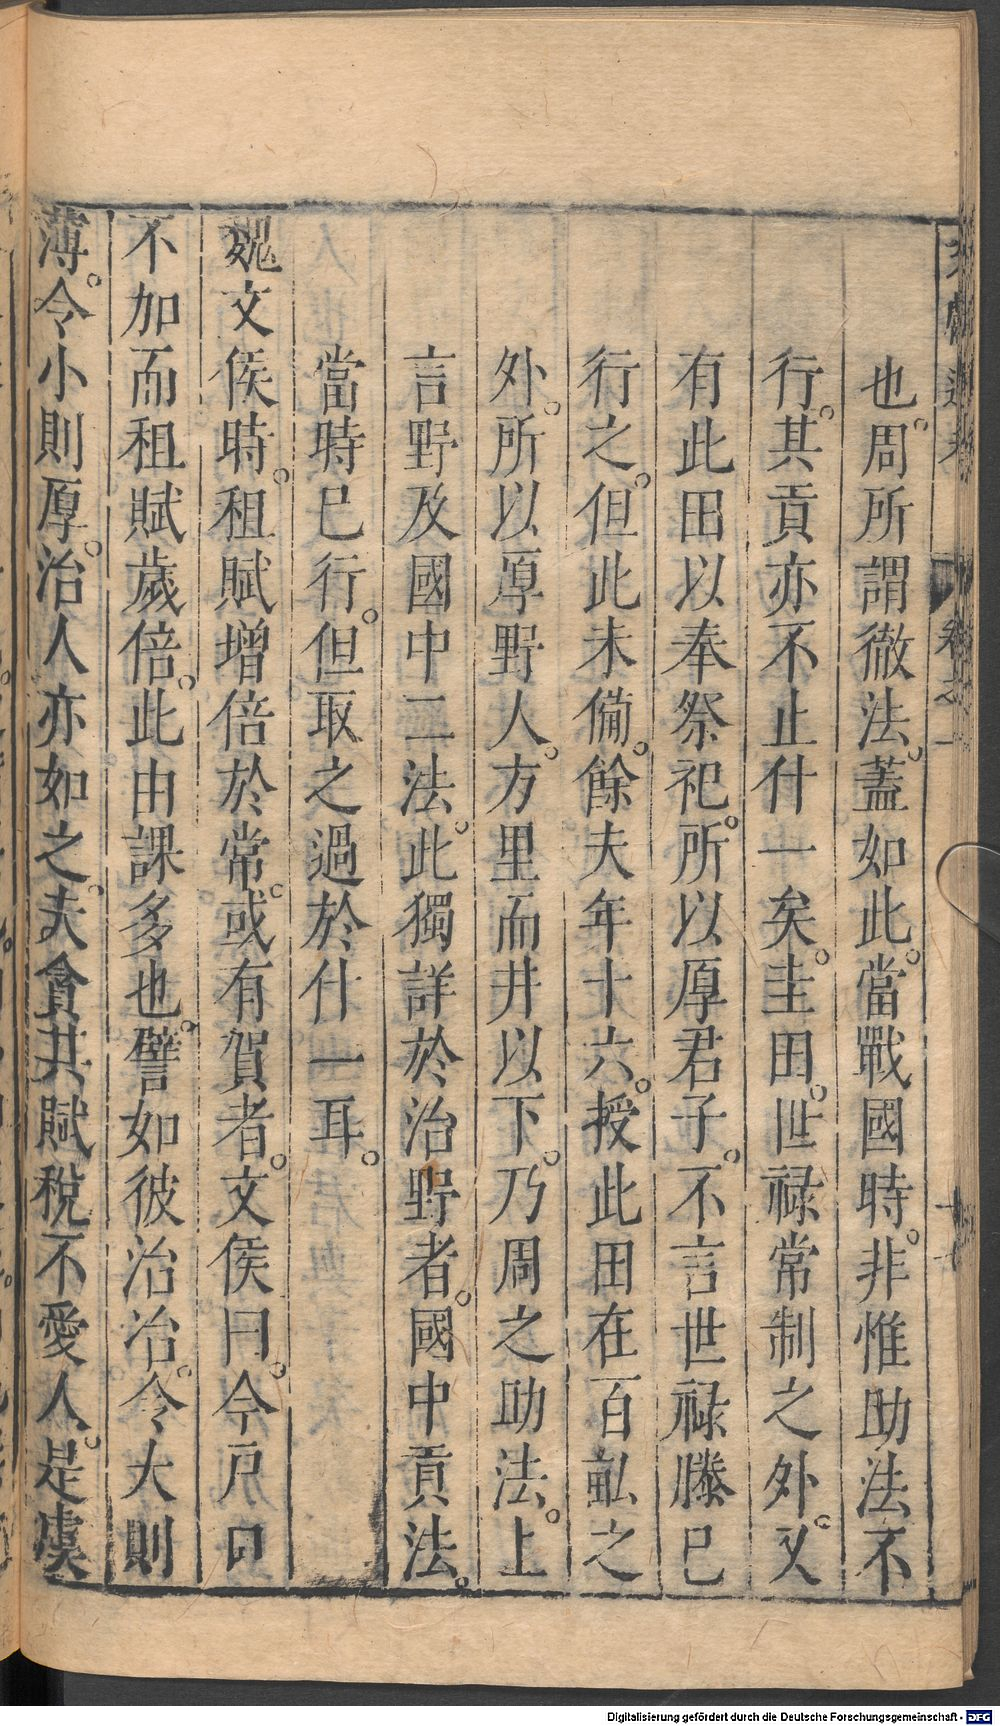 也。周所謂徹法。蓋如此。當戰國時。非惟助法不
行。其貢亦不止什一矣。圭田。世祿常制之外。又
有此田以奉祭祀。所以厚君子。不言世祿滕已
行之。但此未備。餘夫年十六。授此田在百畝之
外。所以厚野人。方里而井以下。乃周之助法。上
言野及國中二法。此獨詳於治野者。國中貢法。
當時已行。但取之過於什一耳。
魏文侯時。租賦增倍於常。或有賀者。文侯曰。今戶口
不加而租賦歲倍。此由課多也。譬如彼治冶。令大則
薄。令小則厚。治人亦如之。夫貪其賦稅不愛人。是虞
Digitalisierung gefördert durch die Deutsche Forschungsgemeinschaft - DFG